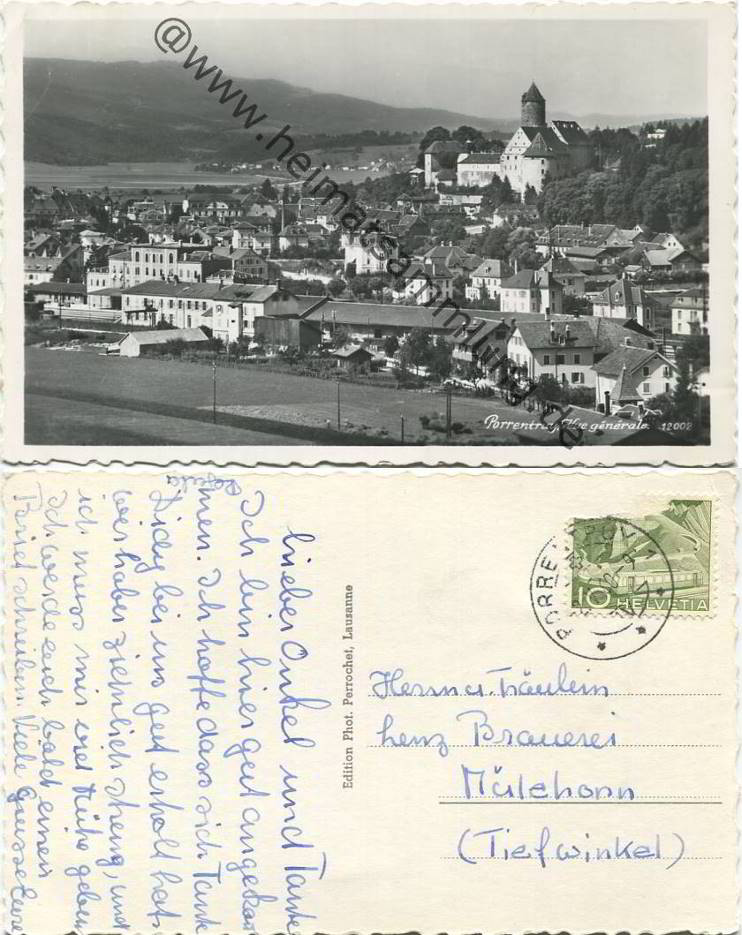 @www.heimatsammlung.de
Porrentruy. Vue générale. 12002
Lieber Onkel und Tante
Ich bin hier gut angekom
men. Ich hoffe dass sich Tante
Lidy bei uns gut erholt hat.
Wir haben ziehmlich streng, und
ich muss mir viel Mühe geben
Ich werde euch bald einen
Brief schreiben. Viele Grüsse Eure
Regula
Edition Phot. Perrochet, Lausanne
PORRENTRUY
10 HELVETIA
Herrn u. Fräulein
Lenz Brauerei
Mülehorn
(Tiefwinkel)